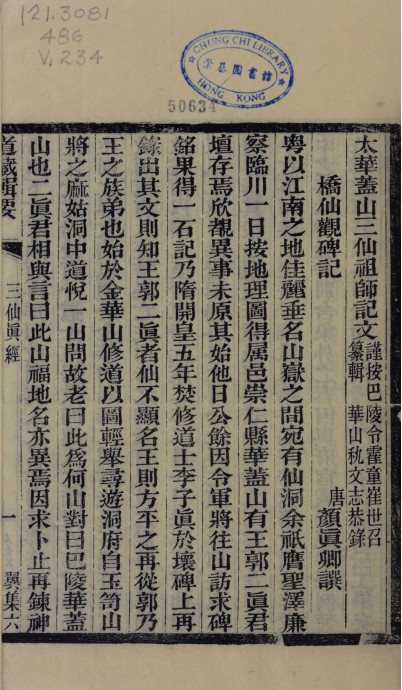 121.3081
486
V.234
CHUNG CHI LIBRARY
崇基圖書館
HONG KONG
50634
太華蓋山三仙祖師記文
謹按巴陵令霍童崔世召
纂輯 華山秇文志恭錄
橋仙觀碑記
唐 顏眞卿譔
粵以江南之地佳麗垂名山嶽之間宛有仙洞余祇膺聖澤廉
察臨川一日按地理圖得属邑崇仁縣華蓋山有王郭二眞君
壇存焉欣覩異事未原其始他日公餘因令軍將往山訪求碑
銘果得一石記乃隋開皇五年焚修道士李子眞於壞碑上再
錄出其文則知王郭二眞者仙不顯名王則方平之再從郭乃
王之族弟也始於金華山修道以圖輕舉尋遊洞府自玉笥山
將之麻姑洞中道悅一山問故老曰此爲何山對曰巴陵華蓋
山也二眞君相與言曰此山福地名亦異焉因求卜止再鍊神
道藏輯要
三仙眞經
一
翼集六